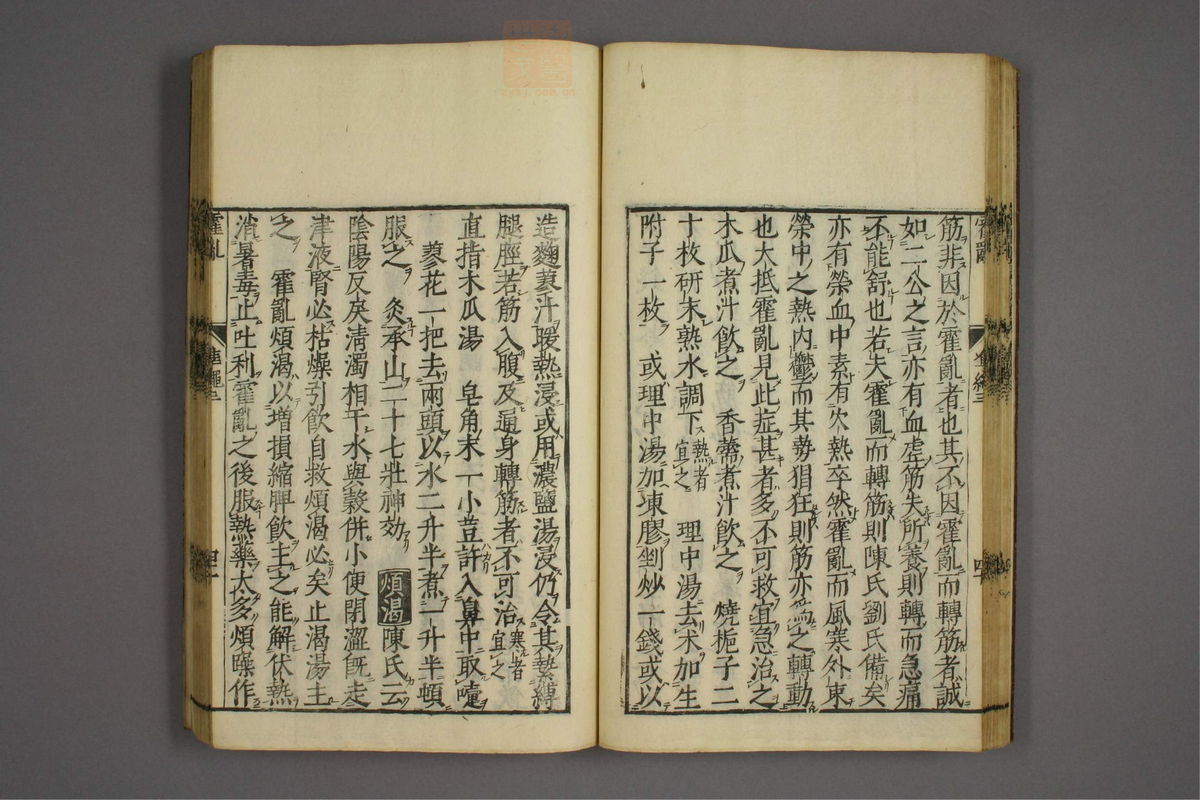 筋非因於霍亂者也其不因霍亂而轉筋者誠
如二公之言亦有血虛筋失所養則轉而急痛
不能舒也若夫霍亂而轉筋則陳氏劉氏備矣
亦有榮血中素有火熱卒然霍亂而風寒外束
榮中之熱內鬱而其勢猖狂則筋亦為之轉動
也大抵霍亂見此症甚者多不可救宜急治之
木瓜煮汁飲之 香薷煮汁飲之 燒梔子二
十枚研末熟水調下熱者宜之 理中湯去朮加生
附子一枚 或理中湯加凍膠剉炒一錢或以
造麴蓼汁暖熱浸或用濃鹽湯浸仍令其縶縛
腿脛若筋入腹及遍身轉筋者不可治寒者宜之
直指木瓜湯 皂角末一小荳許入鼻中取嚏
蓼花一把去兩頭以水二升半煮一升半頓
服之 灸承山二十七壯神効 煩渴陳氏云
陰陽反戾清濁相干水與穀併小便閉澀既走
津液腎必枯燥引飲自救煩渴必矣止渴湯主
之 霍亂煩渴以增損縮脾飲主之能解伏熱
消暑毒止吐利霍亂之後服熱藥太多煩躁作
霍亂